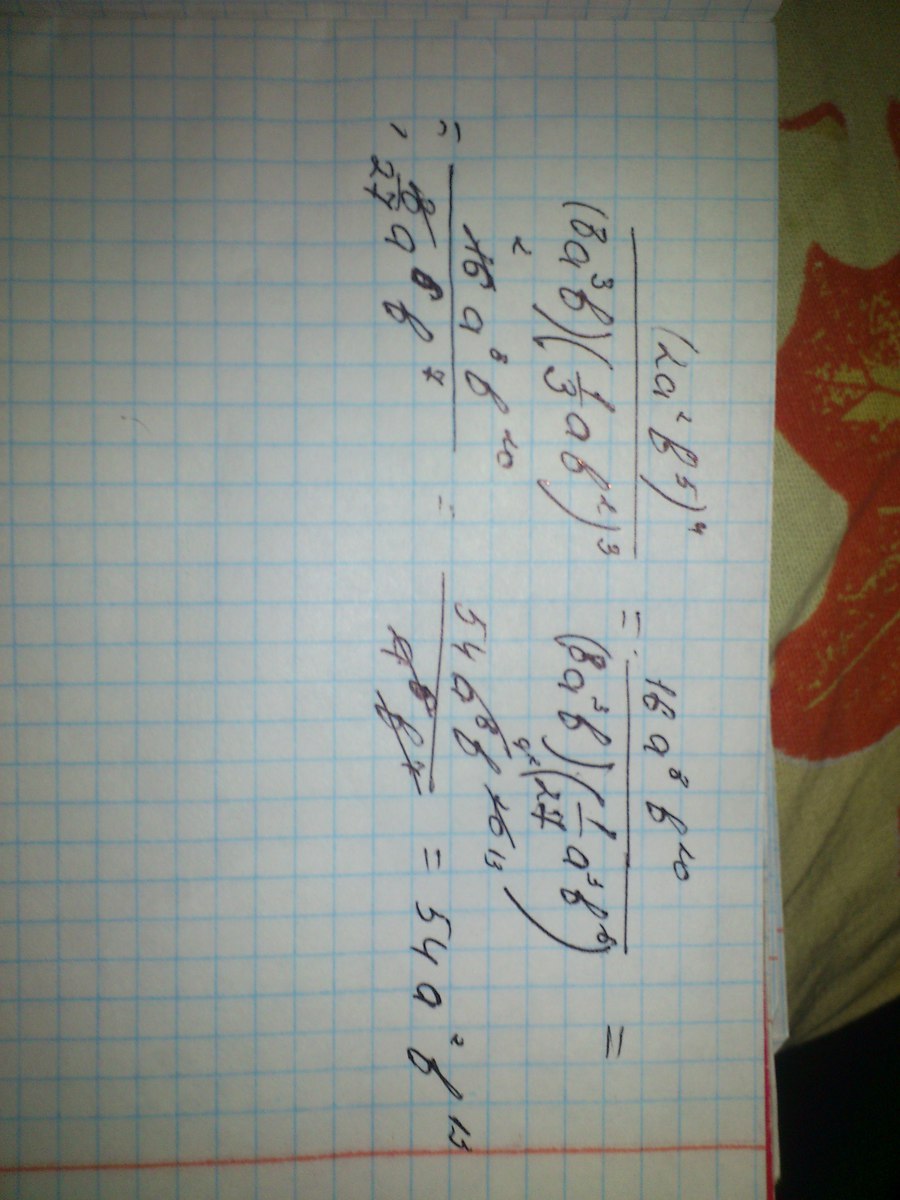 (2a²b⁵)⁴ / (8a³b)(1/3 ab²)³ = 16a⁸b²⁰ / (8a³b)(1/27 a³b⁶) =
= 16a⁸b²⁰ / 8/27 a⁶b⁷ = 54a⁸b²⁰ ¹³ / a⁶b⁷ = 54a²b¹³